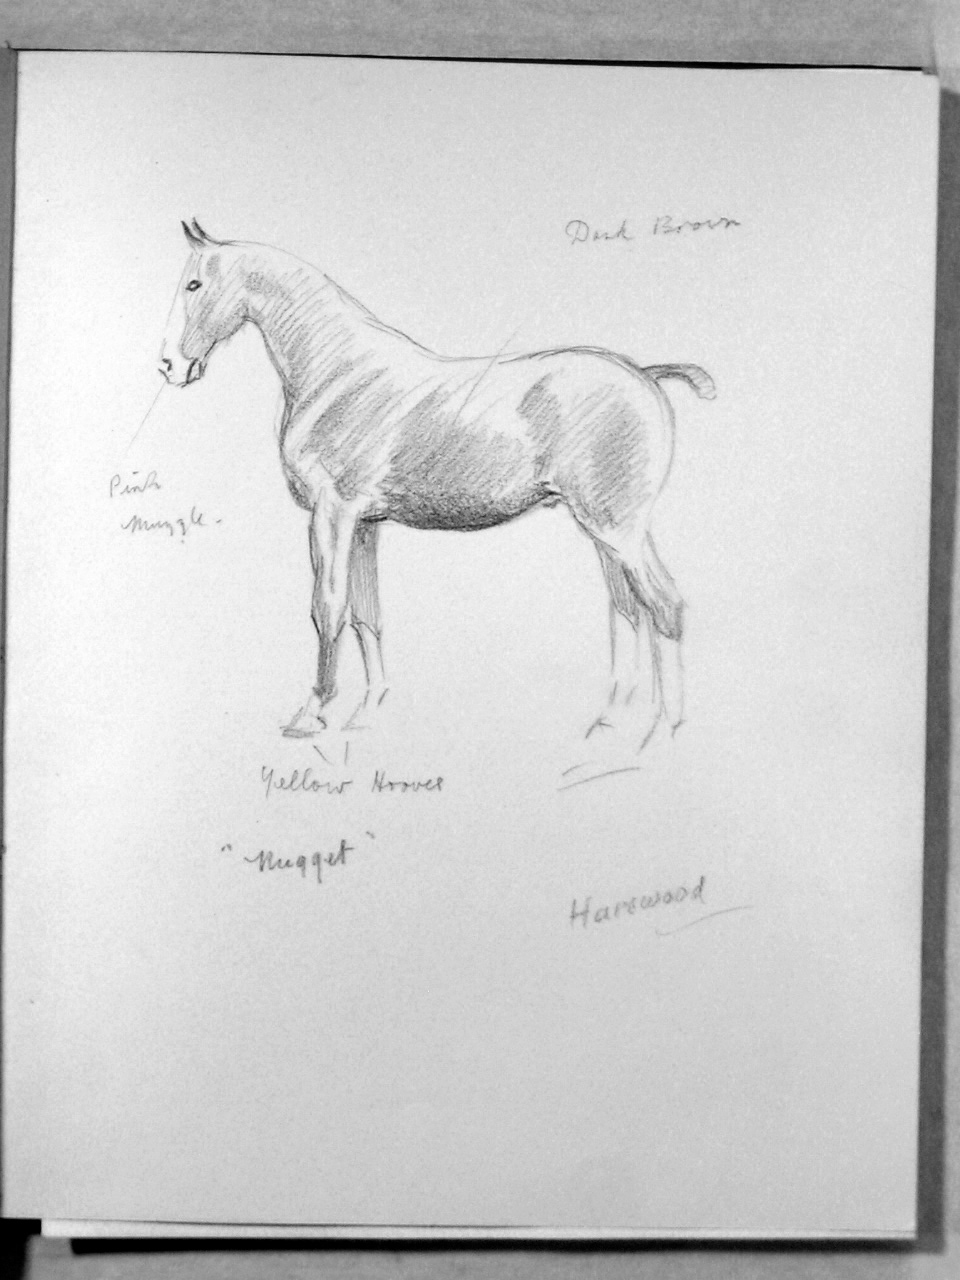 Dark Brown
Pink
Muzzle.
Yellow Hooves
"Nugget"
Harewood